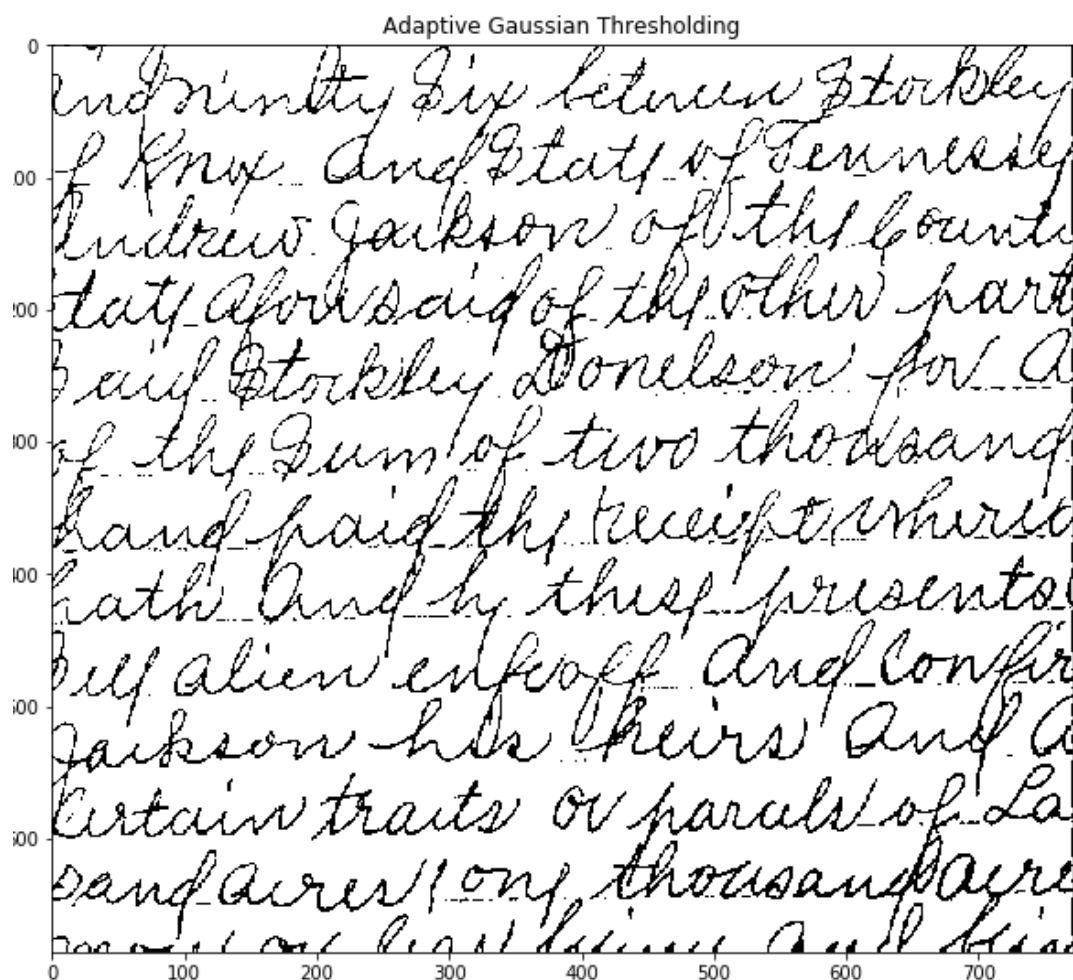 Adaptive Gaussian Thresholding
and ninety Six between Stockley
of Knox And State of Tennessee
Andrew Jackson of the Count
tate aforesaid of the other part
Said Stockley Donelson for A
of the Sum of two thousand
hand paid the receipt where
hath And by these presents
Sell alien enfeoff And Confir
Jackson his heirs And A
Certain tracts or parcels of La
sand acres one thousand acre